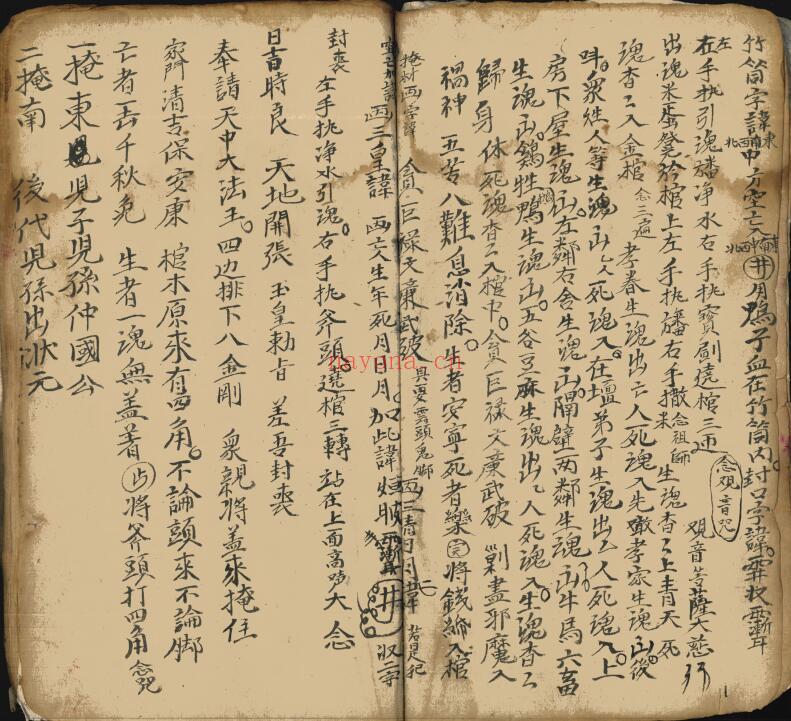 竹筒字諱中方空亡入井月鴉子血在竹筒內封口字諱霹杈兩漸耳
左手执引魂旛净水右手执寶劍遶棺三匝 念观音咒 观音菩薩大慈
出魂米 於棺上左手执旛右手撒米念祖師 生魂杳杳上青天 死
魂杳杳入金棺 念三遍 孝眷生魂出亡人死魂入先 孝家生魂出後
眾姓人等生魂出亡人死魂入在壇弟子生魂出亡人死魂入上
房下屋生魂出左鄰右舍生魂出隔壁两鄰生魂出牛馬六畜
生魂出鷄牲鴨生魂出五谷豆麻生魂出亡人死魂入生魂杳杳
歸身 休死魂杳杳入棺中 貪巨禄文廉武破 剿盡邪魔入
禍神 五苦八難息消除 生者安寧死者樂 完 將錢 入棺
掩材画字諱 貪巨禄文廉武破 具要雲頭鬼脚
画三皇諱 画亡人生年死月日月 加此諱 井
封喪 左手执净水引魂 右手执斧頭遶棺三轉 站在上面高 大念
日吉時良 天地開張 玉皇勅旨 差吾封喪
奉請天中大法王 四边排下八金刚 眾親將盖來掩住
家門清吉保安康 棺木原來有四角 不論頭來不論脚
亡者一去千秋兔 生者一魂無盖着 将斧頭打四角 念咒
一掩東 兒子兒孫仲國公
二掩南 後代兒孫出狀元
nayona.cn